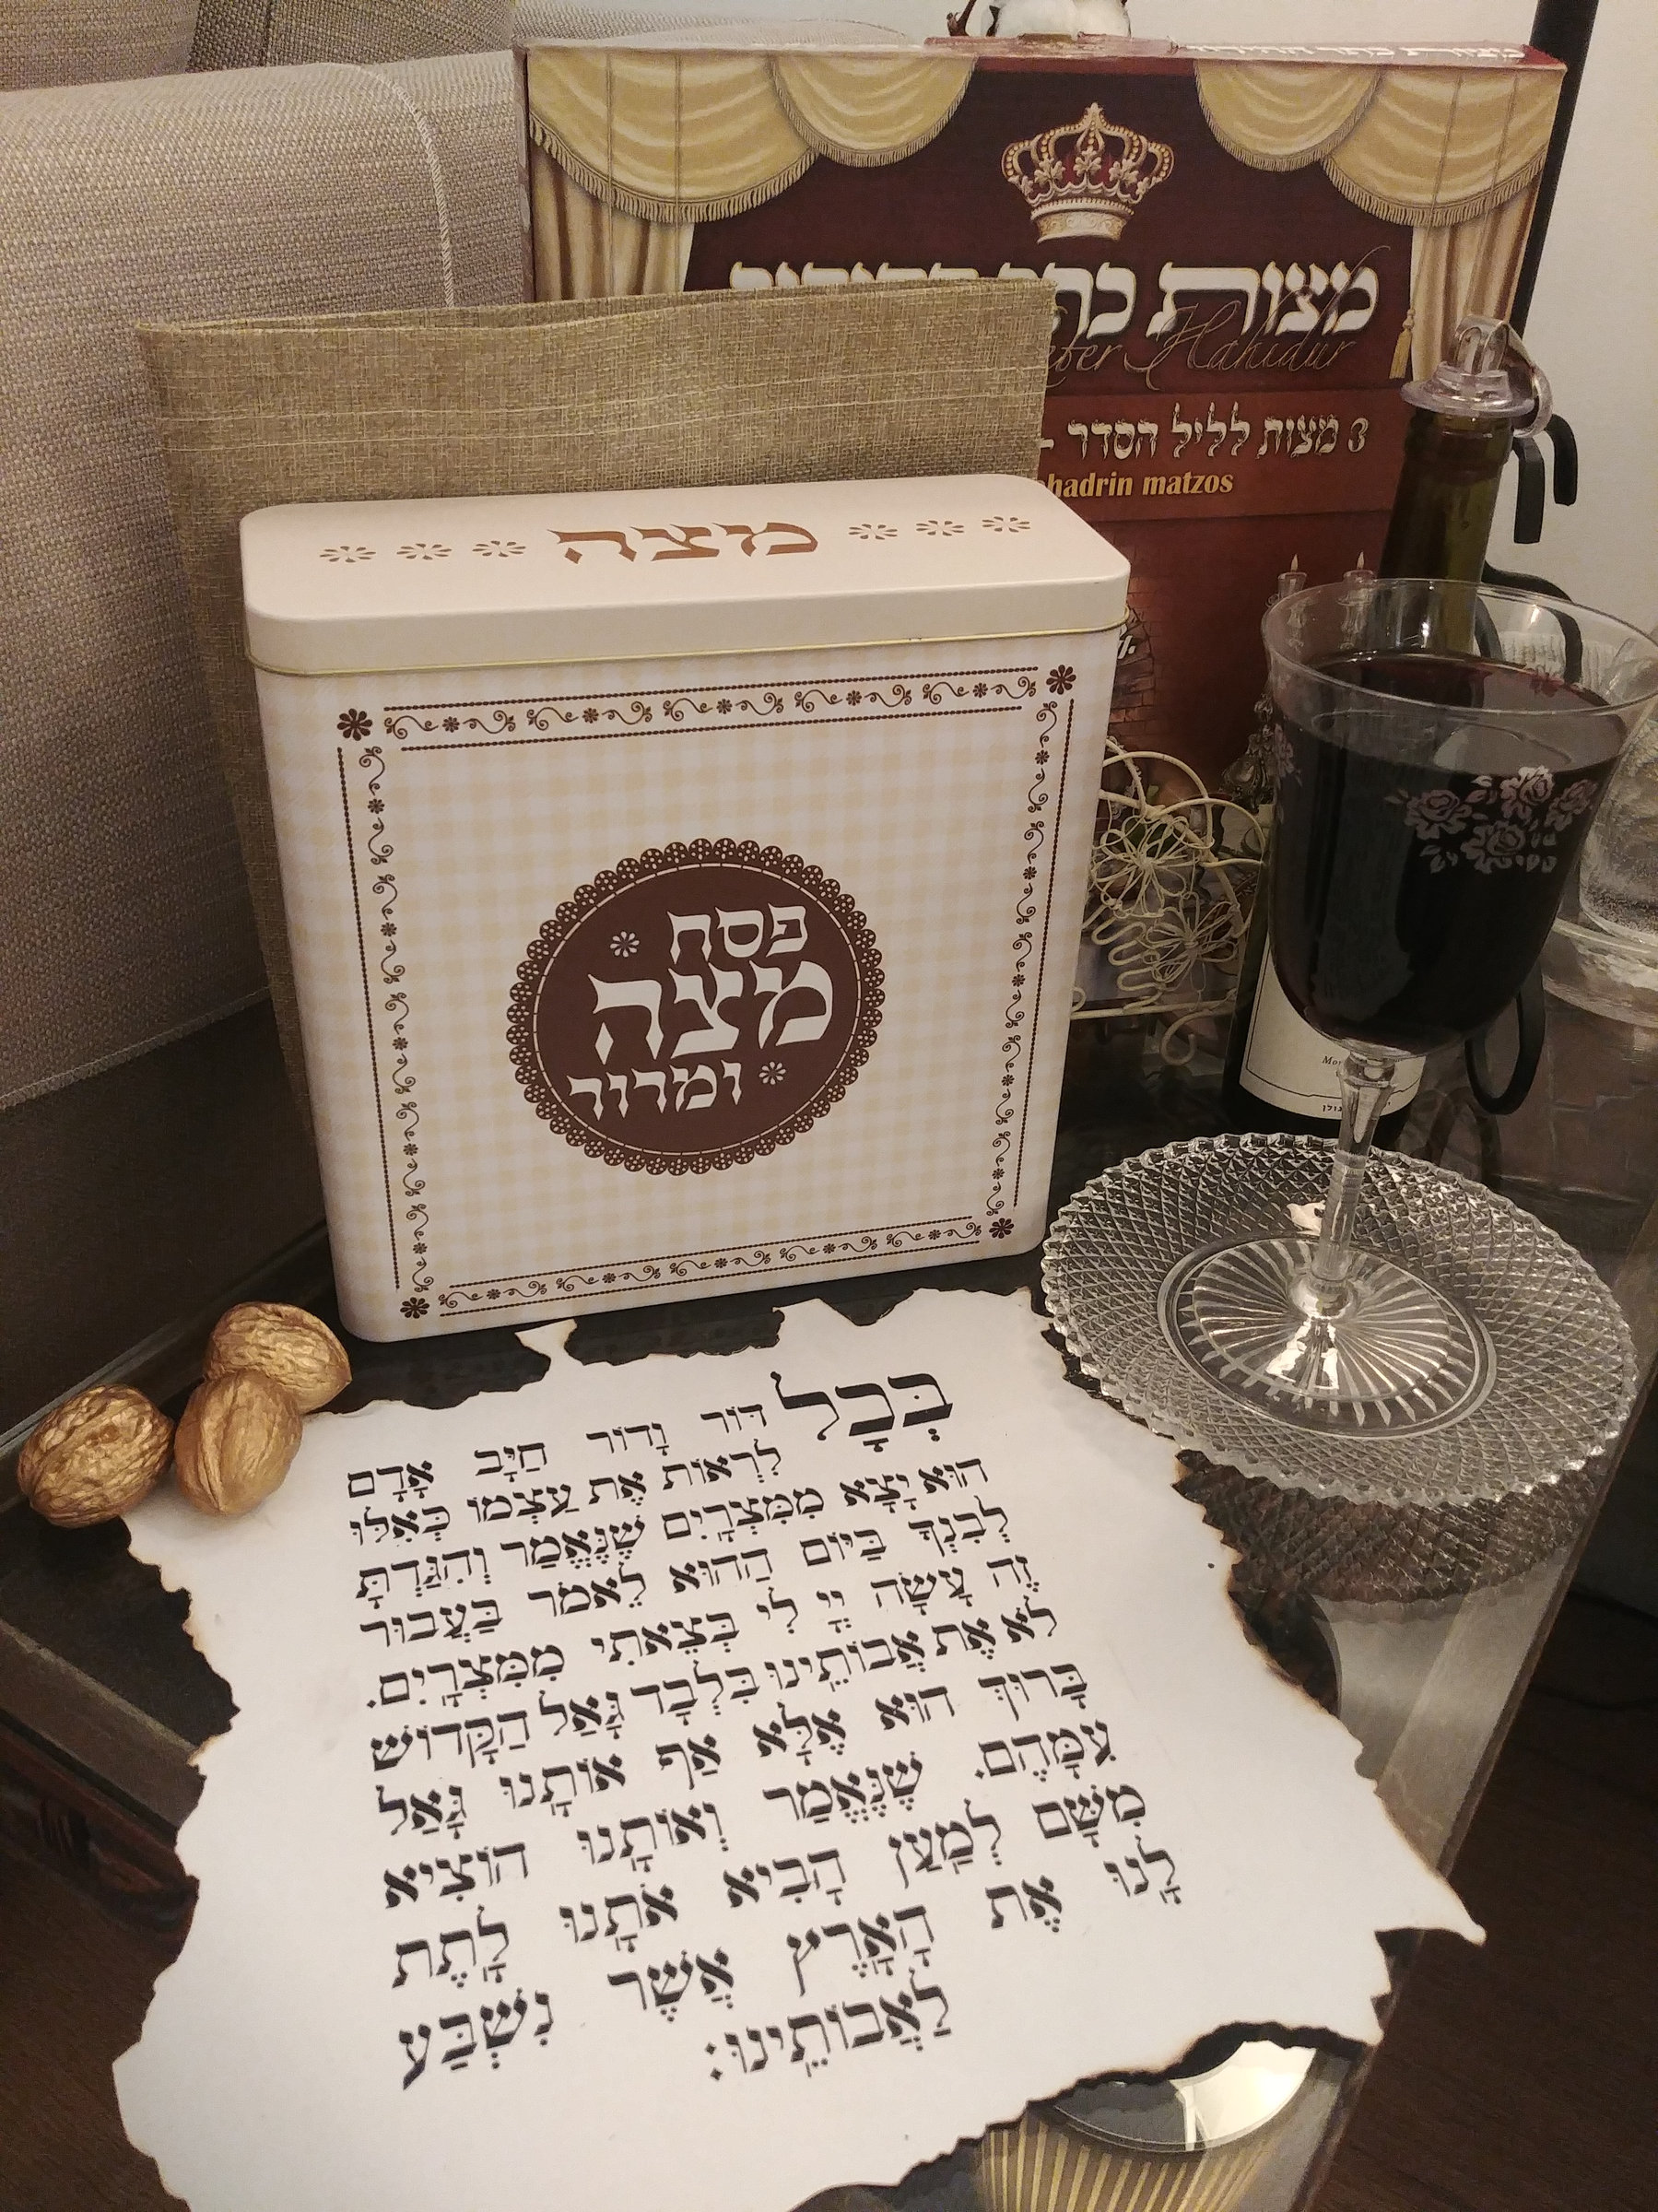 מצות כתר ההידור
Hahidur
3 מצות לליל הסדר -
matzos
מצה
פסח
מצה
ומרור
בְּכָל דּוֹר וָדוֹר חַיָּב אָדָם
לִרְאוֹת אֶת עַצְמוֹ כְּאִלּוּ
הוּא יָצָא מִמִּצְרַיִם שֶׁנֶּאֱמַר וְהִגַּדְתָּ
לְבִנְךָ בַּיּוֹם הַהוּא לֵאמֹר בַּעֲבוּר
זֶה עָשָׂה יְיָ לִי בְּצֵאתִי מִמִּצְרָיִם.
לֹא אֶת אֲבוֹתֵינוּ בִּלְבָד גָּאַל הַקָּדוֹשׁ
בָּרוּךְ הוּא אֶלָּא אַף אוֹתָנוּ גָּאַל
עִמָּהֶם. שֶׁנֶּאֱמַר וְאוֹתָנוּ הוֹצִיא
מִשָּׁם לְמַעַן הָבִיא אֹתָנוּ לָתֶת
לָנוּ אֶת הָאָרֶץ אֲשֶׁר נִשְׁבַּע
לַאֲבוֹתֵינוּ: